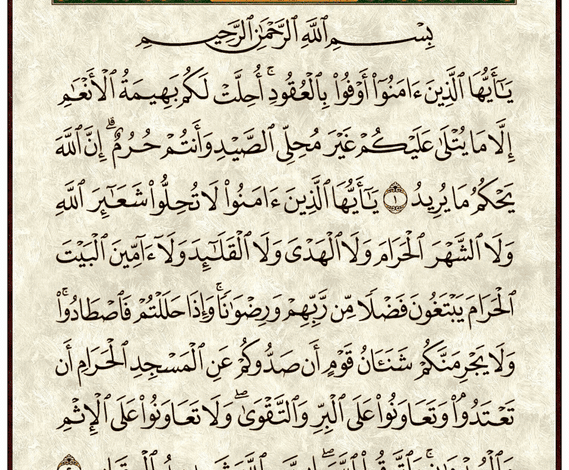 بِسْمِ ٱللَّهِ ٱلرَّحْمَٰنِ ٱلرَّحِيمِ
يَٰٓأَيُّهَا ٱلَّذِينَ ءَامَنُوٓا۟ أَوْفُوا۟ بِٱلْعُقُودِ ۚ أُحِلَّتْ لَكُم بَهِيمَةُ ٱلْأَنْعَٰمِ
إِلَّا مَا يُتْلَىٰ عَلَيْكُمْ غَيْرَ مُحِلِّى ٱلصَّيْدِ وَأَنتُمْ حُرُمٌ ۗ إِنَّ ٱللَّهَ
يَحْكُمُ مَا يُرِيدُ ١ يَٰٓأَيُّهَا ٱلَّذِينَ ءَامَنُوا۟ لَا تُحِلُّوا۟ شَعَٰٓئِرَ ٱللَّهِ
وَلَا ٱلشَّهْرَ ٱلْحَرَامَ وَلَا ٱلْهَدْىَ وَلَا ٱلْقَلَٰٓئِدَ وَلَآ ءَآمِّينَ ٱلْبَيْتَ
ٱلْحَرَامَ يَبْتَغُونَ فَضْلًا مِّن رَّبِّهِمْ وَرِضْوَٰنًا ۚ وَإِذَا حَلَلْتُمْ فَٱصْطَادُوا۟ ۚ
وَلَا يَجْرِمَنَّكُمْ شَنَـَٔانُ قَوْمٍ أَن صَدُّوكُمْ عَنِ ٱلْمَسْجِدِ ٱلْحَرَامِ أَن
تَعْتَدُوا۟ ۘ وَتَعَاوَنُوا۟ عَلَى ٱلْبِرِّ وَٱلتَّقْوَىٰ ۖ وَلَا تَعَاوَنُوا۟ عَلَى ٱلْإِثْمِ